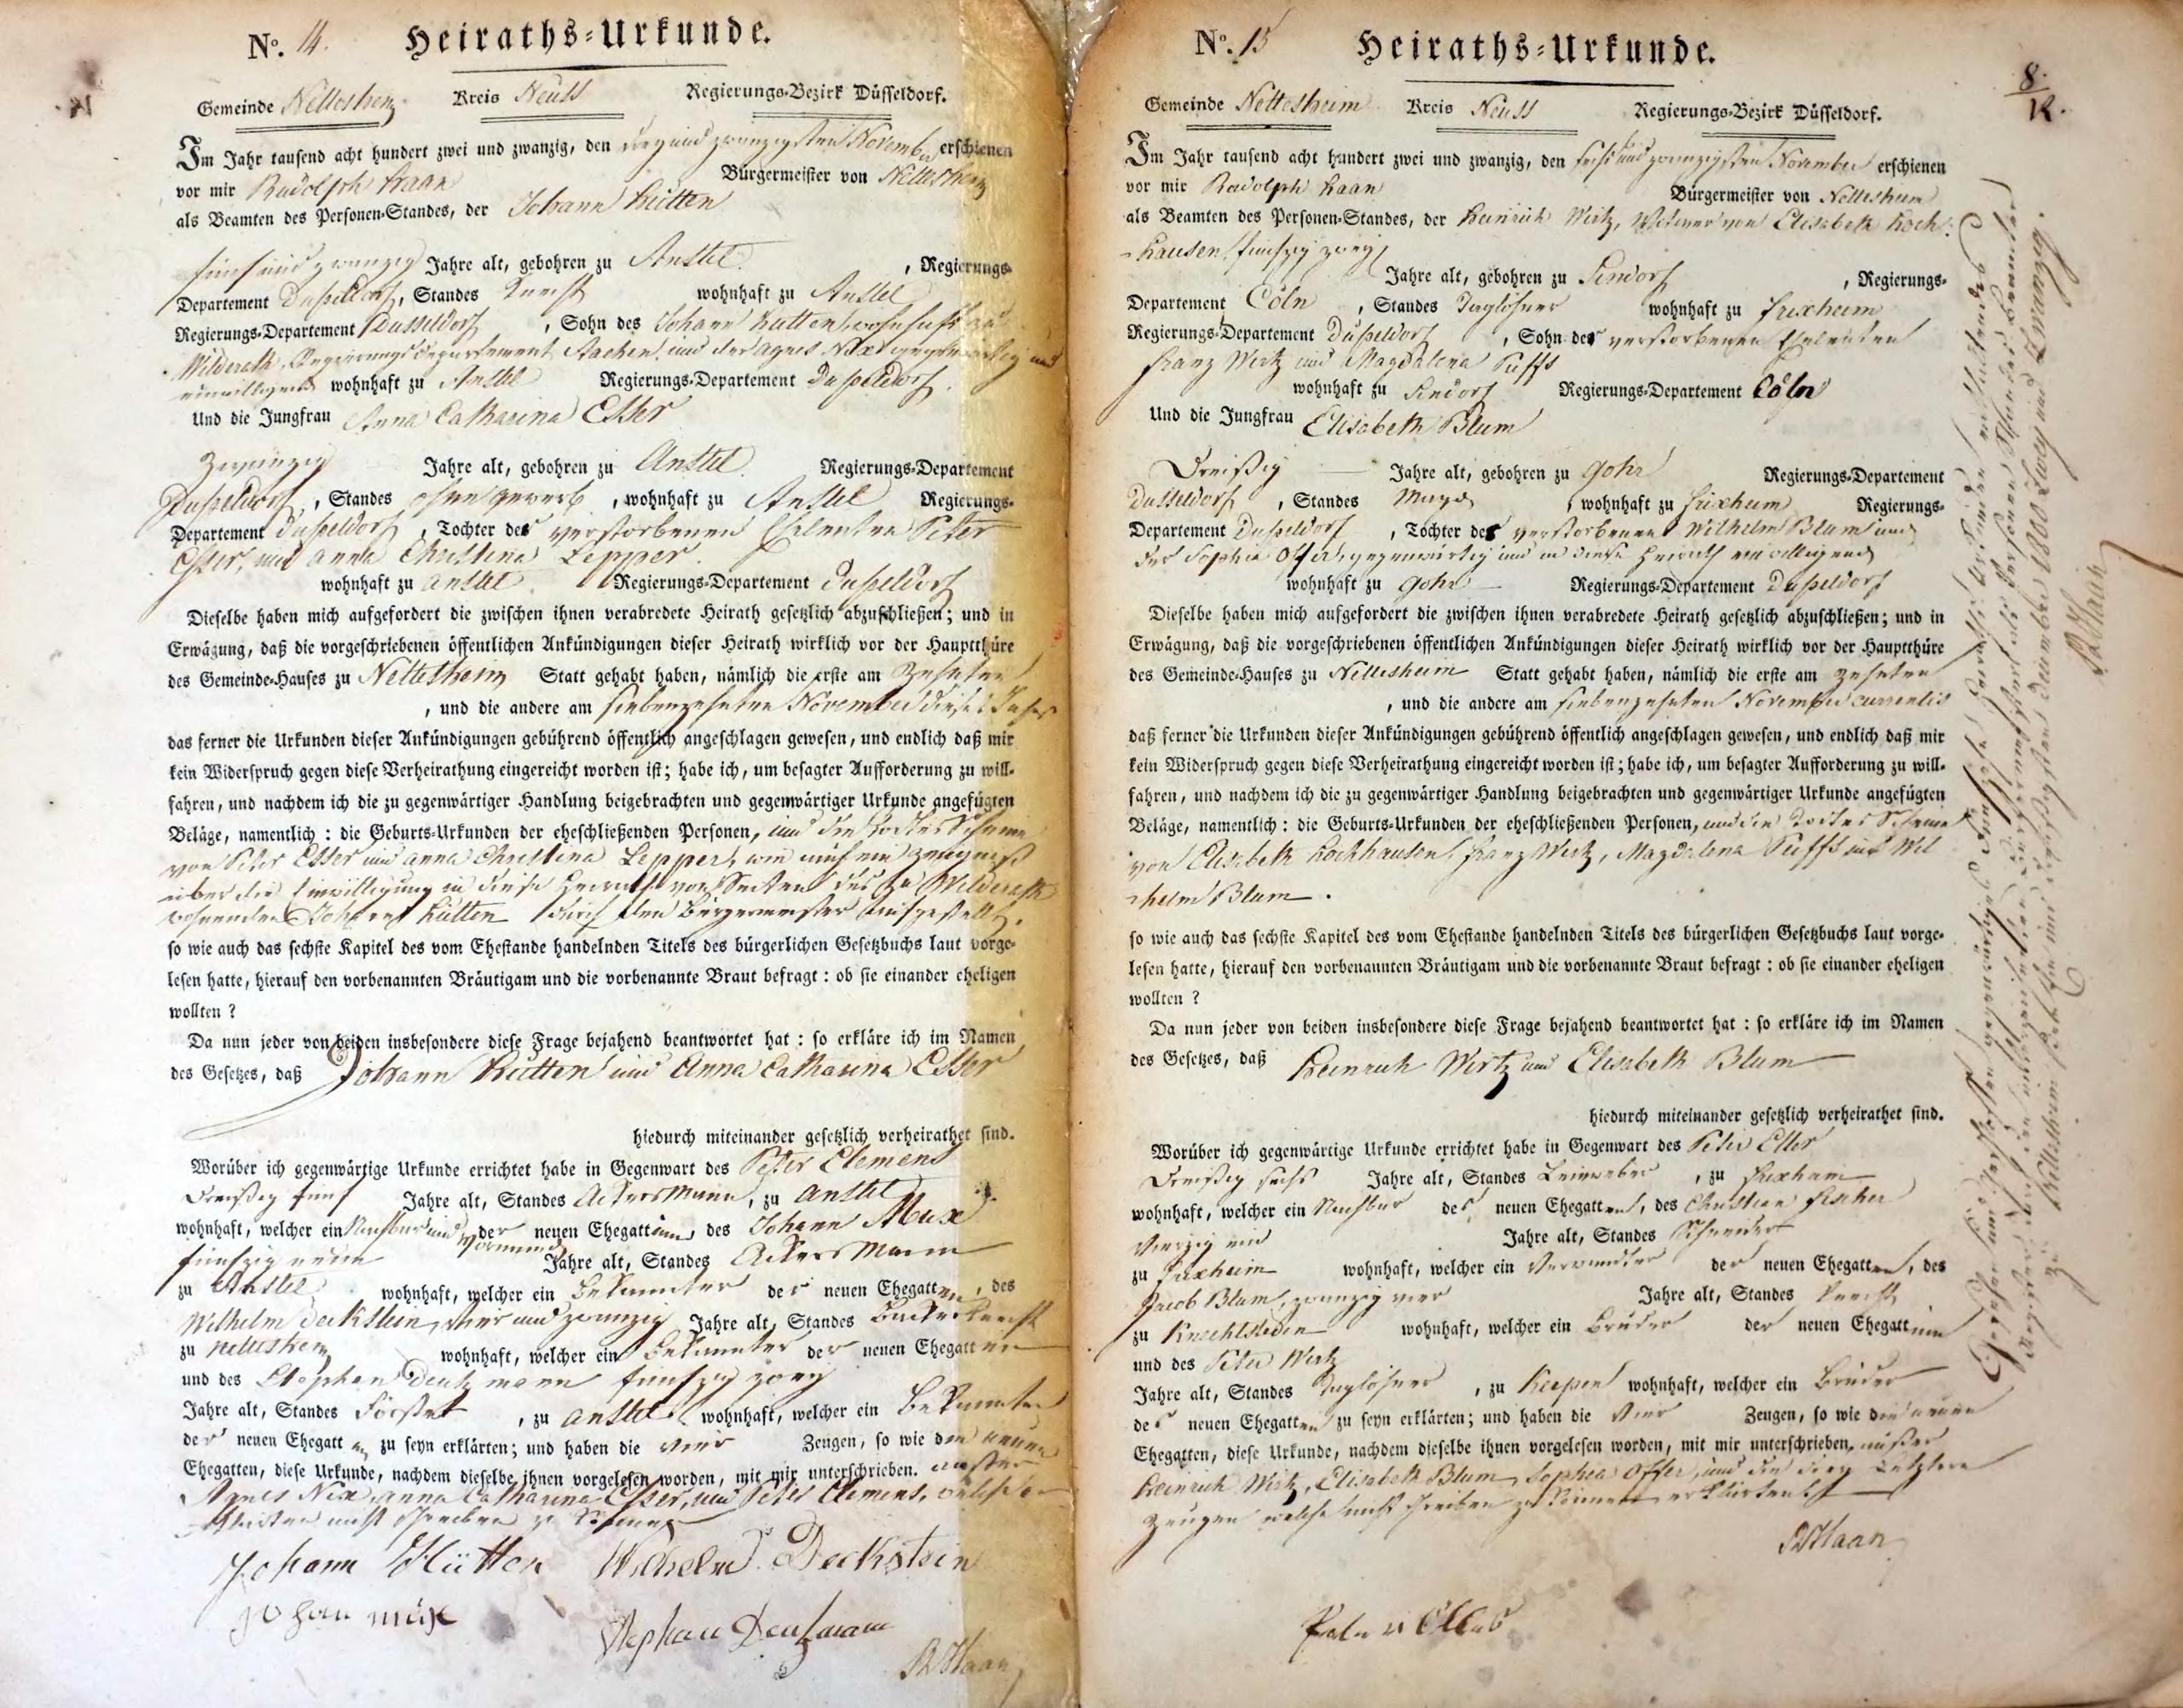 No. 14. Heiraths-Urkunde.
Gemeinde Nettesheim Kreis Neuss Regierungs-Bezirk Düsseldorf.
Im Jahr tausend acht hundert zwei und zwanzig, den drey und zwanzigsten November erschienen
vor mir Rudolph Haan Bürgermeister von Nettesheim
als Beamten des Personen-Standes, der Johann Hütten
fünf und zwanzig Jahre alt, gebohren zu Anstel, Regierungs-
Departement Dusseldorf, Standes Knecht wohnhaft zu Anstel
Regierungs-Departement Dusseldorf, Sohn des Johann Hutten, wohnhaft zu
Wilderath, Regierungs Departement Aachen, und der Agnes Nix gegenwärtig und
einwilligend wohnhaft zu Anstel Regierungs-Departement Dusseldorf.
Und die Jungfrau Anna Catharina Esser
zwanzig Jahre alt, gebohren zu Anstel Regierungs-Departement
Dusseldorf, Standes ohne Gewerb, wohnhaft zu Anstel Regierungs-
Departement Dusseldorf, Tochter der verstorbenen Eheleuten Peter
Esser, und Anna Christina Lepper.
wohnhaft zu Anstel Regierungs-Departement Dusseldorf
Dieselbe haben mich aufgefordert die zwischen ihnen verabredete Heirath gesetzlich abzuschließen; und in
Erwägung, daß die vorgeschriebenen öffentlichen Ankündigungen dieser Heirath wirklich vor der Hauptthüre
des Gemeinde-Hauses zu Nettesheim Statt gehabt haben, nämlich die erste am zehnten
, und die andere am siebenzehnten November dieses Jahrs
das ferner die Urkunden dieser Ankündigungen gebührend öffentlich angeschlagen gewesen, und endlich daß mir
kein Widerspruch gegen diese Verheirathung eingereicht worden ist; habe ich, um besagter Aufforderung zu will-
fahren, und nachdem ich die zu gegenwärtiger Handlung beigebrachten und gegenwärtiger Urkunde angefügten
Beläge, namentlich: die Geburts-Urkunden der eheschließenden Personen, und die Todtes Scheine
von Peter Esser und Anna Christina Lepper, wie auch ein Zeugniß
über die Einwilligung in diese Heirath von Seiten des zu Wilderath
wohnenden Johann Hütten durch den Bürgermeister ausgestellt.
so wie auch das sechste Kapitel des vom Ehestande handelnden Titels des bürgerlichen Gesetzbuchs laut vorge-
lesen hatte, hierauf den vorbenannten Bräutigam und die vorbenannte Braut befragt: ob sie einander eheligen
wollten?
Da nun jeder von beiden insbesondere diese Frage bejahend beantwortet hat: so erkläre ich im Namen
des Gesetzes, daß Johann Hütten und Anna Catharina Esser
hiedurch miteinander gesetzlich verheirathet sind.
Worüber ich gegenwärtige Urkunde errichtet habe in Gegenwart des Peter Clemens
Dreißig fünf Jahre alt, Standes Ackersmann, zu Anstel
wohnhaft, welcher ein Nachbar und Vormund der neuen Ehegattinn, des Johann Mux
fünfzig neun Jahre alt, Standes Ackersmann
zu Anstel wohnhaft, welcher ein Bekannter der neuen Ehegatten, des
Wilhelm Deckstein, vier und zwanzig Jahre alt, Standes Beckerknecht
zu Nettesheim wohnhaft, welcher ein Bekannter der neuen Ehegatten
und des Stephan Deutzmann fünfzig zwey
Jahre alt, Standes Förster, zu Anstel wohnhaft, welcher ein Bekannter
der neuen Ehegatten zu seyn erklärten; und haben die vier Zeugen, so wie die neuen
Ehegatten, diese Urkunde, nachdem dieselbe ihnen vorgelesen worden, mit mir unterschrieben. außer
Agnes Nix, Anna Catharina Esser, und Peter Clemens, welche
erklärten nicht schreiben zu können
Johann Hütten Wilhelm Deckstein
Johan mux
Stephan Deutzmann
R Haan
No. 15 Heiraths-Urkunde.
8.
12.
Gemeinde Nettesheim Kreis Neuss Regierungs-Bezirk Düsseldorf.
Im Jahr tausend acht hundert zwei und zwanzig, den sechs und zwanzigsten November erschienen
vor mir Rudolph Haan Bürgermeister von Nettesheim
als Beamten des Personen-Standes, der Heinrich Wirtz, Wittwer von Elisabeth Koch-
hausen, fünfzig zwey
Jahre alt, gebohren zu Sindorf, Regierungs-
Departement Cöln, Standes Taglöhner wohnhaft zu Frixheim
Regierungs-Departement Dusseldorf, Sohn der verstorbenen Eheleuten
Franz Wirtz und Magdalena Puffs
wohnhaft zu Sindorf Regierungs-Departement Cöln
Und die Jungfrau Elisabeth Blum
Dreißig Jahre alt, gebohren zu Gohr Regierungs-Departement
Dusseldorf, Standes Magd, wohnhaft zu Frixheim Regierungs-
Departement Dusseldorf, Tochter des verstorbenen Wilhelm Blum und
der Sophia Offer, gegenwärtig und in diese Heirath einwilligend
wohnhaft zu Gohr Regierungs-Departement Dusseldorf
Dieselbe haben mich aufgefordert die zwischen ihnen verabredete Heirath gesetzlich abzuschließen; und in
Erwägung, daß die vorgeschriebenen öffentlichen Ankündigungen dieser Heirath wirklich vor der Hauptthüre
des Gemeinde-Hauses zu Nettesheim Statt gehabt haben, nämlich die erste am zehnten
, und die andere am siebenzehnten November currentis
daß ferner die Urkunden dieser Ankündigungen gebührend öffentlich angeschlagen gewesen, und endlich daß mir
kein Widerspruch gegen diese Verheirathung eingereicht worden ist; habe ich, um besagter Aufforderung zu will-
fahren, und nachdem ich die zu gegenwärtiger Handlung beigebrachten und gegenwärtiger Urkunde angefügten
Beläge, namentlich: die Geburts-Urkunden der eheschließenden Personen, und die Todtes Scheine
von Elisabeth Kochhausen, Franz Wirtz, Magdalena Puffs und Wil
helm Blum.
so wie auch das sechste Kapitel des vom Ehestande handelnden Titels des bürgerlichen Gesetzbuchs laut vorge-
lesen hatte, hierauf den vorbenannten Bräutigam und die vorbenannte Braut befragt: ob sie einander eheligen
wollten?
Da nun jeder von beiden insbesondere diese Frage bejahend beantwortet hat: so erkläre ich im Namen
des Gesetzes, daß Heinrich Wirtz und Elisabeth Blum
hiedurch miteinander gesetzlich verheirathet sind.
Worüber ich gegenwärtige Urkunde errichtet habe in Gegenwart des Peter Esser
Dreißig sechs Jahre alt, Standes Leinweber, zu Frixheim
wohnhaft, welcher ein Nachbar der neuen Ehegatten, des Christian Fischer
Vierzig ein Jahre alt, Standes Schneider
zu Frixheim wohnhaft, welcher ein Verwandter der neuen Ehegatten, des
Jacob Blum, zwanzig vier Jahre alt, Standes Knecht
zu Knechtsteden wohnhaft, welcher ein Bruder der neuen Ehegattinn
und des Peter Wirtz
Jahre alt, Standes Taglöhner, zu Kerpen wohnhaft, welcher ein Bruder
des neuen Ehegatten zu seyn erklärten; und haben die vier Zeugen, so wie die neuen
Ehegatten, diese Urkunde, nachdem dieselbe ihnen vorgelesen worden, mit mir unterschrieben, außer
Heinrich Wirtz, Elisabeth Blum, Sophia Offer, und die drey Letztern
Zeugen welche nicht schreiben zu können erklärten
R Haan
Gesehen und geschlossen gegenwärtiges Heiraths
Nettesheim den ein und dreißigsten Decembre 1800 Zwey und Zwanzig.
R Haan